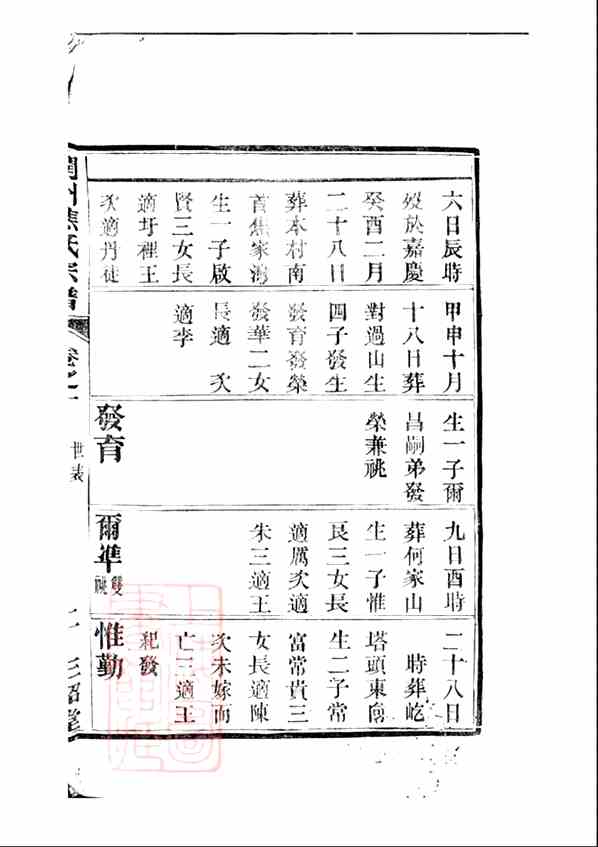 六日辰時
歿於嘉慶
癸酉二月
二十八日
葬本村南
首焦家灣
生一子啟
賢三女長
適圩裡王
次適丹徒
甲申十月
十八日葬
對過山生
四子發生
發育發榮
發華二女
長適 次
適李
生一子爾
昌嗣弟發
榮兼祧
發育
九日酉時
葬何家山
生一子惟
良三女長
適厲次適
朱三適王
爾準雙祧
二十八日
時葬屹
塔頭東
生二子常
富常貴三
女長適陳
次未嫁而
亡三適王
祀發
惟勤
潤州焦氏宗譜
卷之
世表
三